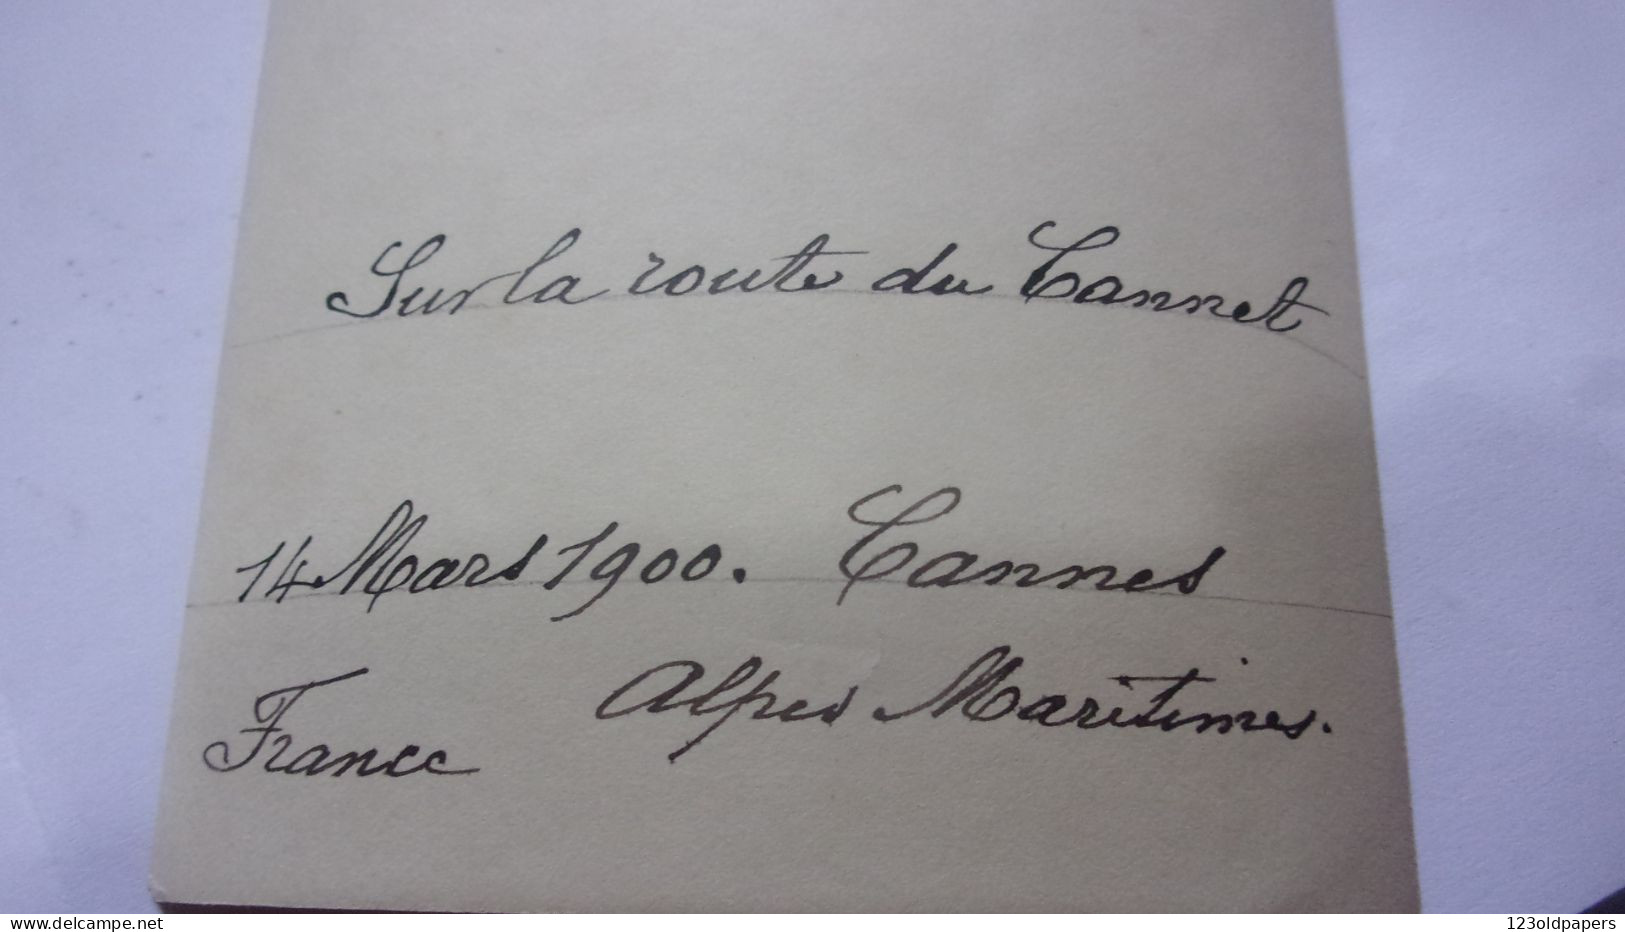 Sur la route du Cannet
14 Mars 1900. Cannes
Alpes Maritimes.
France
www.delcampe.net
123oldpapers